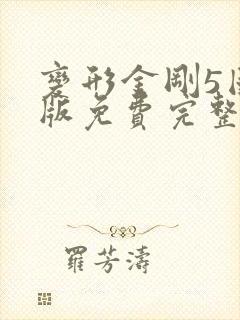 變形金剛5國
版免費完整
羅芳濤